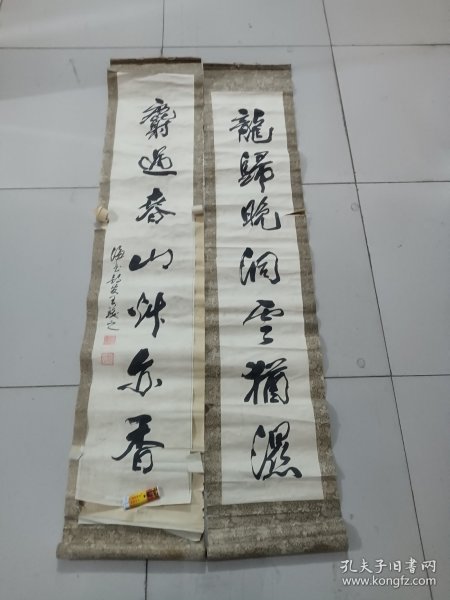 龍歸晚洞雲猶濕
麝過春山艸亦香
孔夫子旧书网
www.kongfz.com